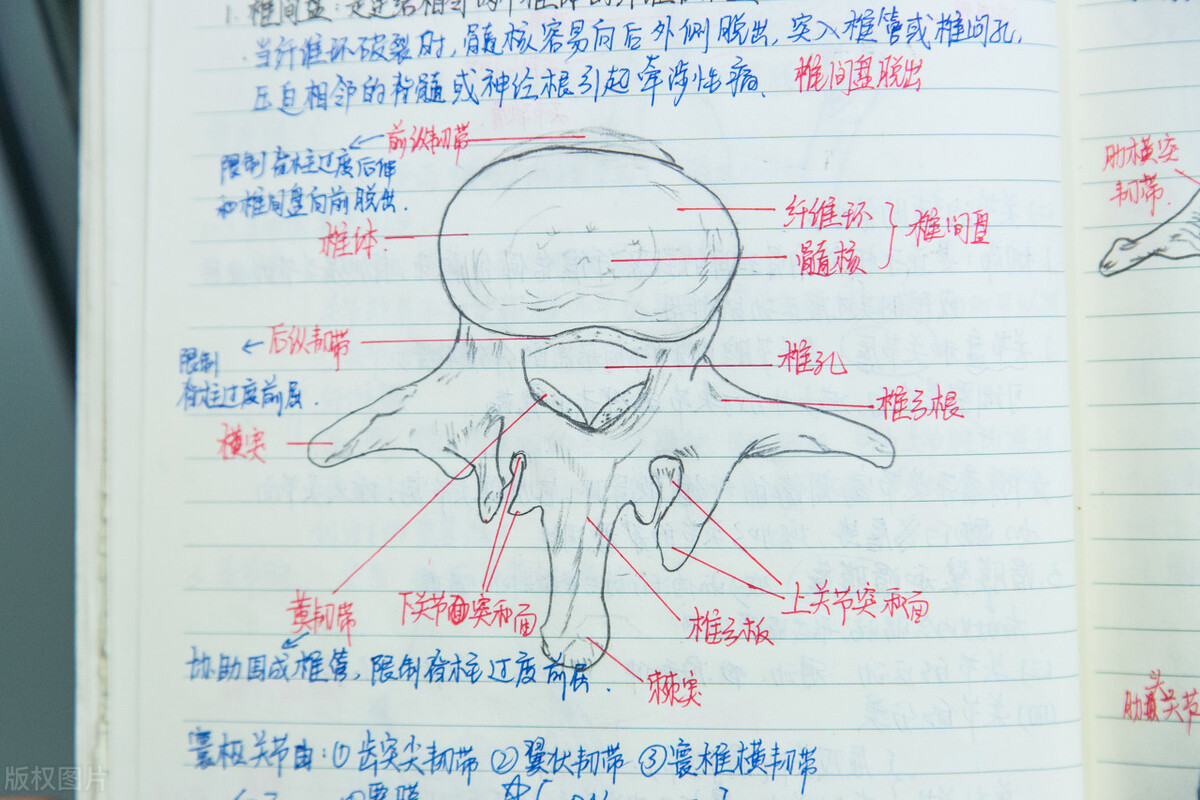 1. 椎间盘:
当纤维环破裂时,髓核容易向后外侧脱出,突入椎管或椎间孔,
压迫相邻的脊髓或神经根引起牵涉性痛、 椎间盘脱出
前纵韧带
限制脊柱过度后伸
和椎间盘向前脱出.
椎体
纤维环
髓核
椎间盘
后纵韧带
限制
脊柱过度前屈.
椎孔
椎弓根
横突
黄韧带
下关节突和面
椎弓板
上关节突和面
棘突
协助围成椎管,限制脊柱过度前屈.
寰枢关节由:①齿突尖韧带 ②翼状韧带 ③寰椎横韧带
肋横突
韧带.
肋头关节
版权图片